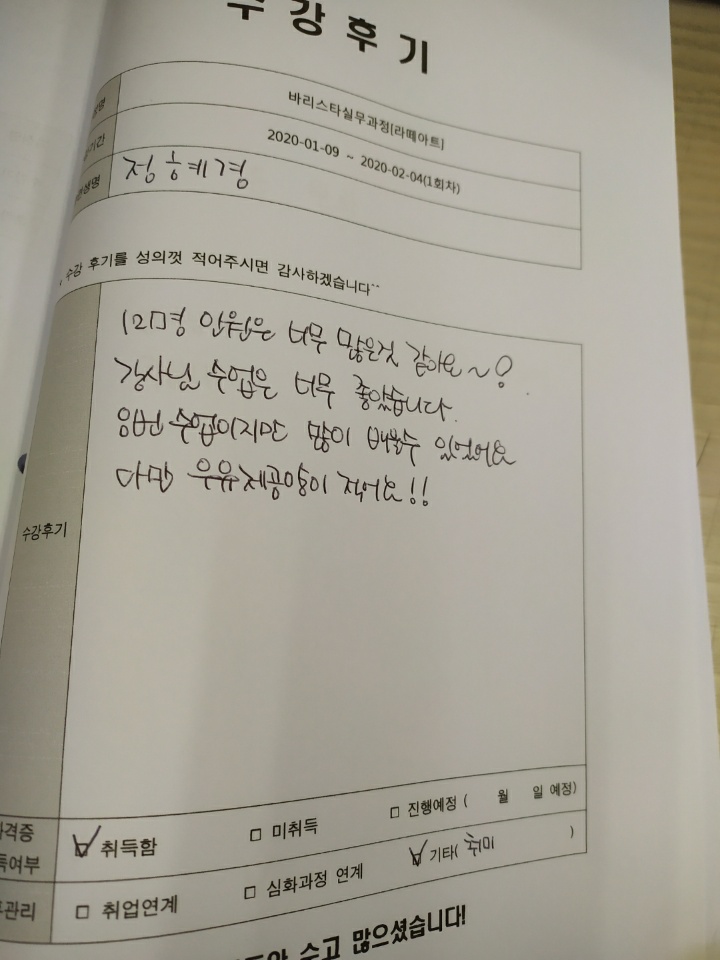 수강후기
바리스타실무과정[라떼아트]
기간 2020-01-09 ~ 2020-02-04(1회차)
생명 정혜경
수강 후기를 성의껏 적어주시면 감사하겠습니다^^
12명 인원은 너무 많은것 같아요~?
강사님 수업은 너무 좋았습니다.
8번 수업이지만 많이 배울수 있었어요
다만 우유제공양이 적어요!!
수강후기
격증 여부 ☑ 취득함 □ 미취득 □ 진행예정 ( 월 일 예정)
관리 □ 취업연계 □ 심화과정 연계 ☑ 기타( 취미 )
수고 많으셨습니다!